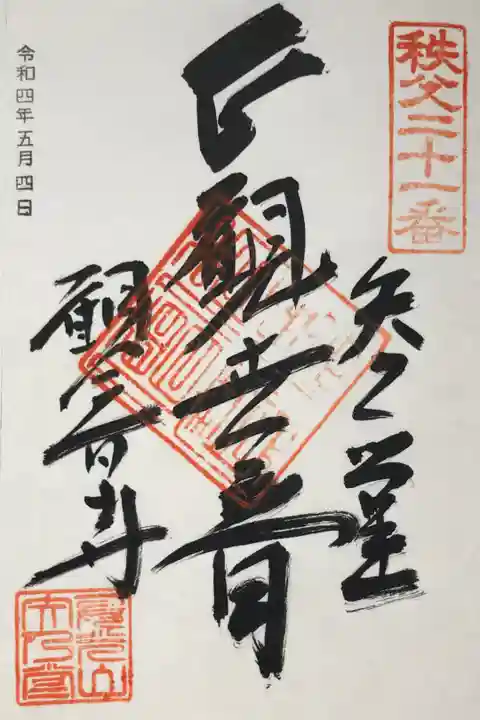 秩父二十一番
矢之堂
正観世音
観音寺
令和四年五月四日